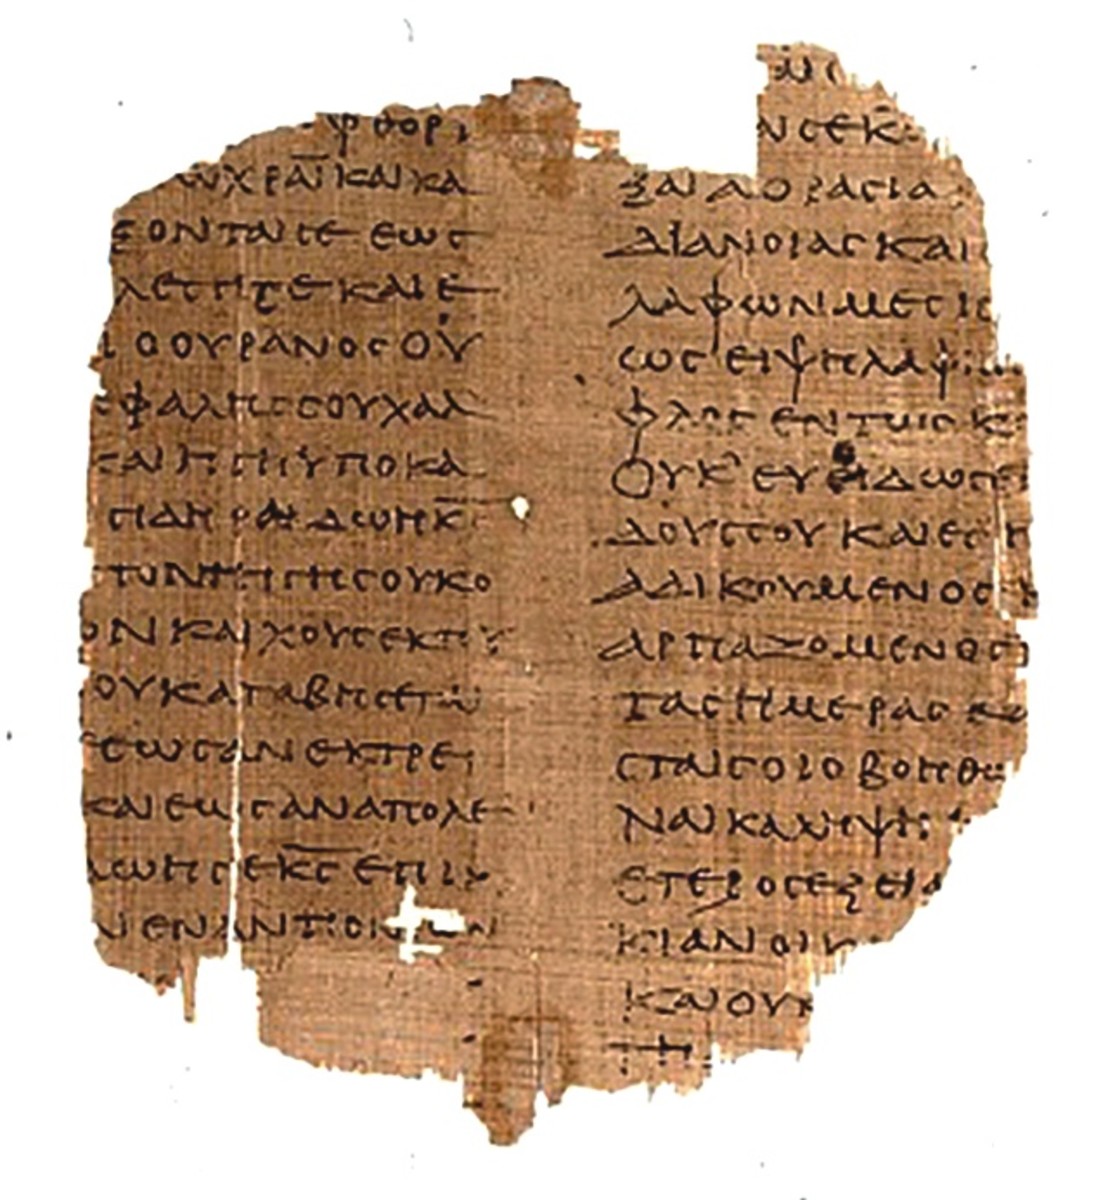 ΦΘΟΡΙ
ΩΧΡΑΙ ΚΑΙ ΚΑ
ΞΟΝΤΑΙ ϹΕ ΕΩϹ
ΛΕϹΗ ϹΕ ΚΑΙ Ε
Ο ΟΥΡΑΝΟϹ Ο Ὑ
ΕΦΑΛΗϹ ϹΟΥ ΧΑΛ
ΚΑΙ Η ΓΗ Η ΥΠΟΚΑ
ϹΙΔΗΡΑ ΔΩΗ Κ̅Ϲ̅
ΤΟΝ ΤΗ ΓΗ ϹΟΥ ΚΟ
ΟΝ ΚΑΙ ΧΟΥϹ ΕΚ ΤΟΥ
ΟΥ ΚΑΤΑΒΗϹΕΤΑΙ
ΕΩϹ ΑΝ ΕΚΤΡΕΙ
ΚΑΙ ΕΩϹ ΑΝ ΑΠΟΛΕ
ΔΩΗ ϹΕ Κ̅Ϲ̅ ΕΠΙ
Ν ΕΝΑΝΤΙΟΝ ΤΩΝ
Ν ϹΕ Κ
ΞΑΙ ΑΟΡΑϹΙΑ
ΔΙΑΝΟΙΑϹ ΚΑΙ
ΛΑΦΩΝ ΜΕϹΗ
ΩϹ ΕΙ ΨΗΛΑΦ
ΦΛΟϹ ΕΝ ΤΩΙ ϹΚ
ΟΥΚ ΕΥΟΔΩϹΕΙ
ΔΟΥϹ ϹΟΥ ΚΑΙ ΕϹΗ
ΑΔΙΚΟΥΜΕΝΟϹ Κ
ΑΡΠΑΖΟΜΕΝΟϹ
ΤΑϹ ΗΜΕΡΑϹ ΚΑ
ϹΤΑΙ ϹΟΙ Ο ΒΟΗΘΩ
ΝΑΙΚΑ ΛΗΨΗ
ΕΤΕΡΟϹ ΕΞΕΙ
ΚΙΑΝ ΟΙΚ
ΚΑΙ ΟΥΚ
ΤΗ